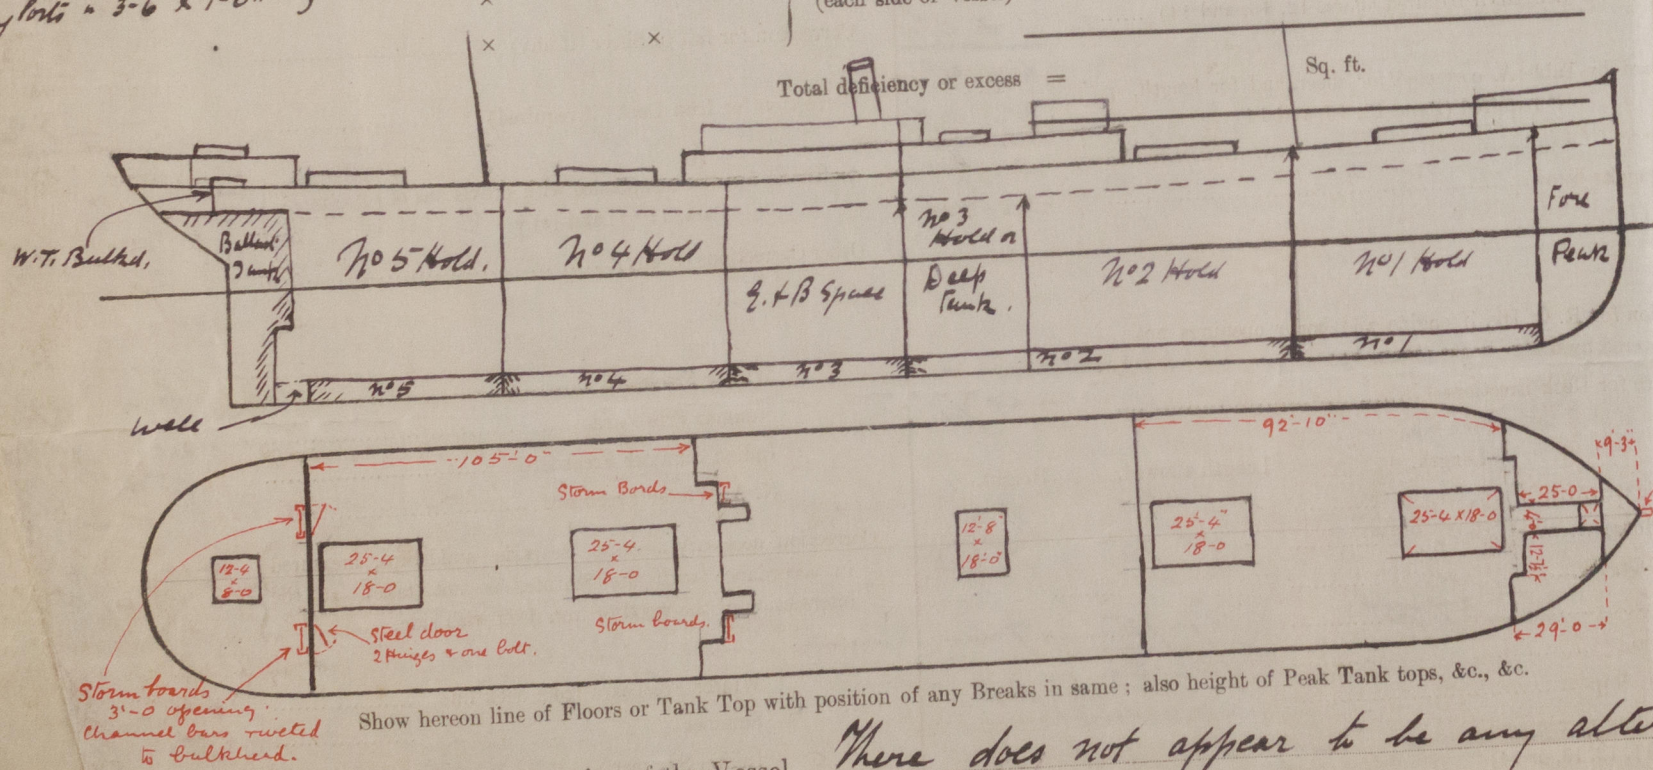 Ports " 3-6 x 1-0"
(each side of vessel)
Total deficiency or excess =
Sq. ft.
W.T. Bulkd.
Ballast
Tank
No 5 Hold.
No 4 Hold
E. & B Space
No 3
Hold or
Deep
Tank.
No 2 Hold
No 1 Hold
Fore
Peak
No 5
No 4
No 3
No 2
No 1
Well
105'-0"
92'-10"
9'-3"
Storm Bords
25-0
12-4
x
8-0
25-4
x
18-0
25-4
x
18-0
12'-8"
x
18'-0"
25'-4"
x
18-0
25-4 x 18-0
Storm boards.
Steel door
2 Hinges & one bolt.
29'-0
Storm boards
3'-0 opening.
Channel bars riveted
to bulkhead.
Show hereon line of Floors or Tank Top with position of any Breaks in same ; also height of Peak Tank tops, &c., &c.
There does not appear to be any alte
Vessel